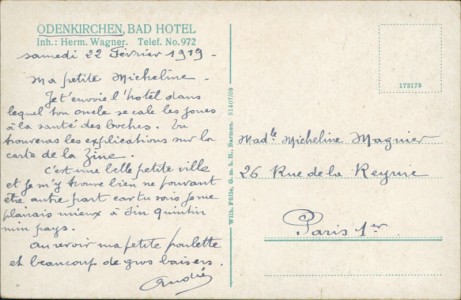 ODENKIRCHEN, BAD HOTEL
Inh.: Herm. Wagner. Telef. No. 972
samedi 22 Février 1919 -
Ma petite Micheline.
Je t'envoie l'hotel dans
lequel ton oncle se cale les joues
à la santé des boches. Tu
trouveras les explications sur la
carte de la Zine.
C'est une belle petite ville
et je m'y trouve bien ne pouvant
être autre part car tu sais je me
plairais mieux à Sin Quintin
min pays.
Au revoir ma petite poulette
et beaucoup de gros baisers.
André
Wilh. Fülle, G. m. b. H., Barmen.
173173
Madle Micheline Magnier
26 Rue de la Reynie
Paris 1er